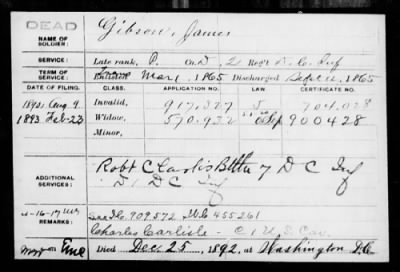 DEAD
NAME OF SOLDIER: Gibson, James
SERVICE: Late rank, P. Co. D, 2 Reg't D.C. Inf
TERM OF SERVICE: Enlisted Mar 1, 1865 Discharged Sept 12, 1865
DATE OF FILING. CLASS. APPLICATION NO. LAW. CERTIFICATE NO.
1892 Aug. 9 Invalid, 917,327 704,028
1893 Feb-23 Widow, 570,932 900428
Minor,
ADDITIONAL SERVICES: Robt C 7 D C Inf
D 1 D C Inf
REMARKS: 909,572 455261
Charles Carlisle - C 1 U.S. Cav.
Died Dec 25, 1892, at Washington D.C.